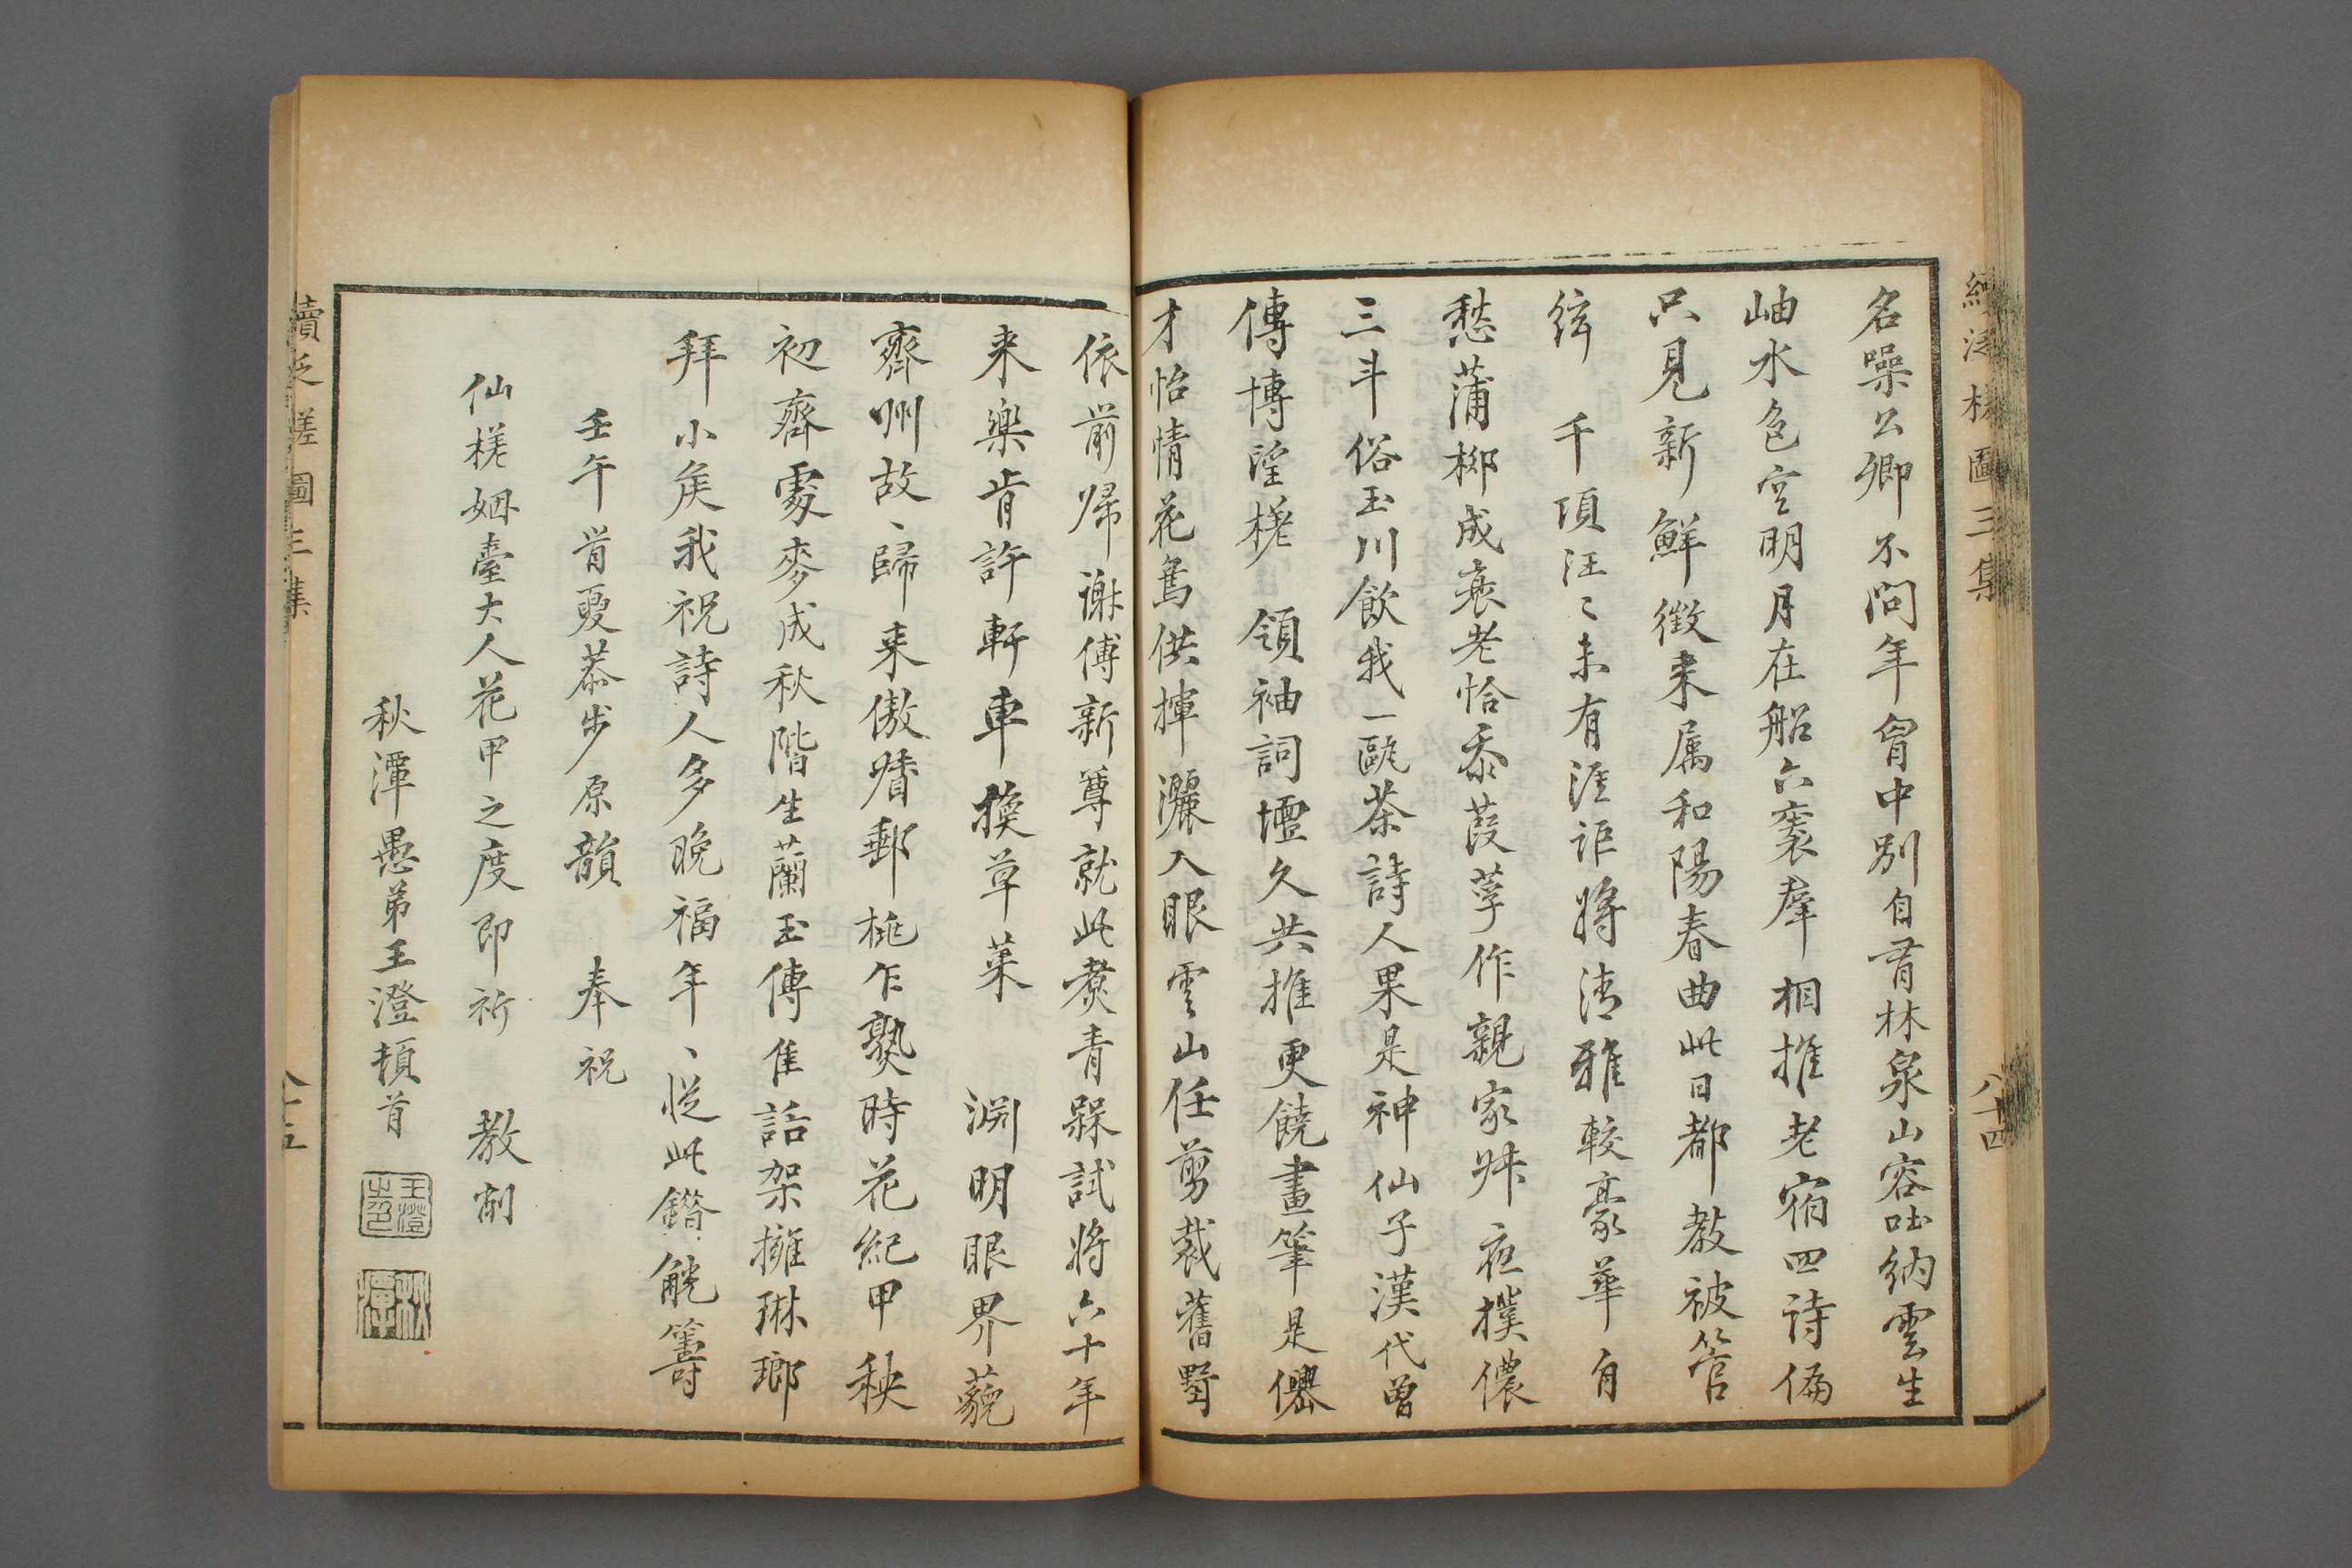 續泛槎圖三集
八十四
名噪公卿不問年胷中別自有林泉山容吐納雲生
岫水色空明月在船六袠羣相推老宿四詩偏
只見新鮮徵來属和陽春曲此日都教被管
絃 千頃汪〻未有涯詎將清雅較豪華自
愁蒲柳成衰老恰忝葭莩作親家垪夜撲儂
三斗俗玉川飲我一甌茶詩人果是神仙子漢代曾
傳博望槎 領袖詞壇久共推更饒畫筆是僊
才怡情花鳥供揮灑入眼雲山任剪裁舊墅
依前歸謝傅新尊就此煮青槑試將六十年
来樂肯許軒車換草萊 淵明眼界藐
齊州故〻歸来傲督郵桃乍熟時花紀甲秧
初齊處麥成秋階生蘭玉傳佳話架擁琳瑯
拜小矦我祝詩人多晚福年〻從此鐕觥籌
壬午首夏恭步原韻 奉祝
仙槎姻臺大人花甲之度即祈 教削
秋潭愚弟王澄頓首
王澄之印
秋潭
續泛槎圖三集
八十五